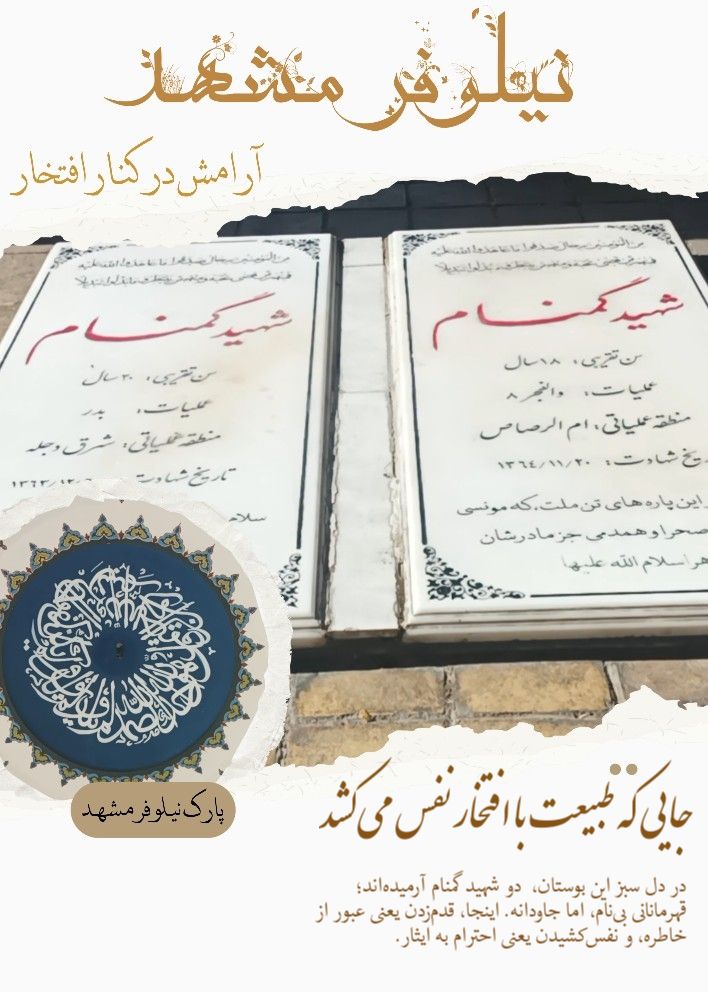 نیلوفر مشهد
آرامش در کنار افتخار
من المؤمنین رجال صدقوا ما عاهدوا الله علیه
فمنهم من قضی نحبه و منهم من ینتظر و ما بدلوا تبدیلا
شهید گمنام
سن تقریبی: ۱۸ سال
عملیات: والفجر ۸
منطقه عملیاتی: ام الرصاص
تاریخ شهادت: ۱۳۶۴/۱۱/۲۰
این پاره های تن ملت، که مونسی
صحرا و همدمی جز مادرشان
زهرا سلام الله علیها
من المؤمنین رجال صدقوا ما عاهدوا الله علیه
فمنهم من قضی نحبه و منهم من ینتظر و ما بدلوا تبدیلا
شهید گمنام
سن تقریبی: ۲۰ سال
عملیات: بدر
منطقه عملیاتی: شرق دجله
تاریخ شهادت: ۱۳۶۳/۱۲/
سلام
پارک نیلوفر مشهد
جایی که طبیعت با افتخار نفس می‌کشد
در دل سبز این بوستان، دو شهید گمنام آرمیده‌اند؛
قهرمانانی بی‌نام، اما جاودانه. اینجا، قدم‌زدن یعنی عبور از
خاطره، و نفس‌کشیدن یعنی احترام به ایثار.